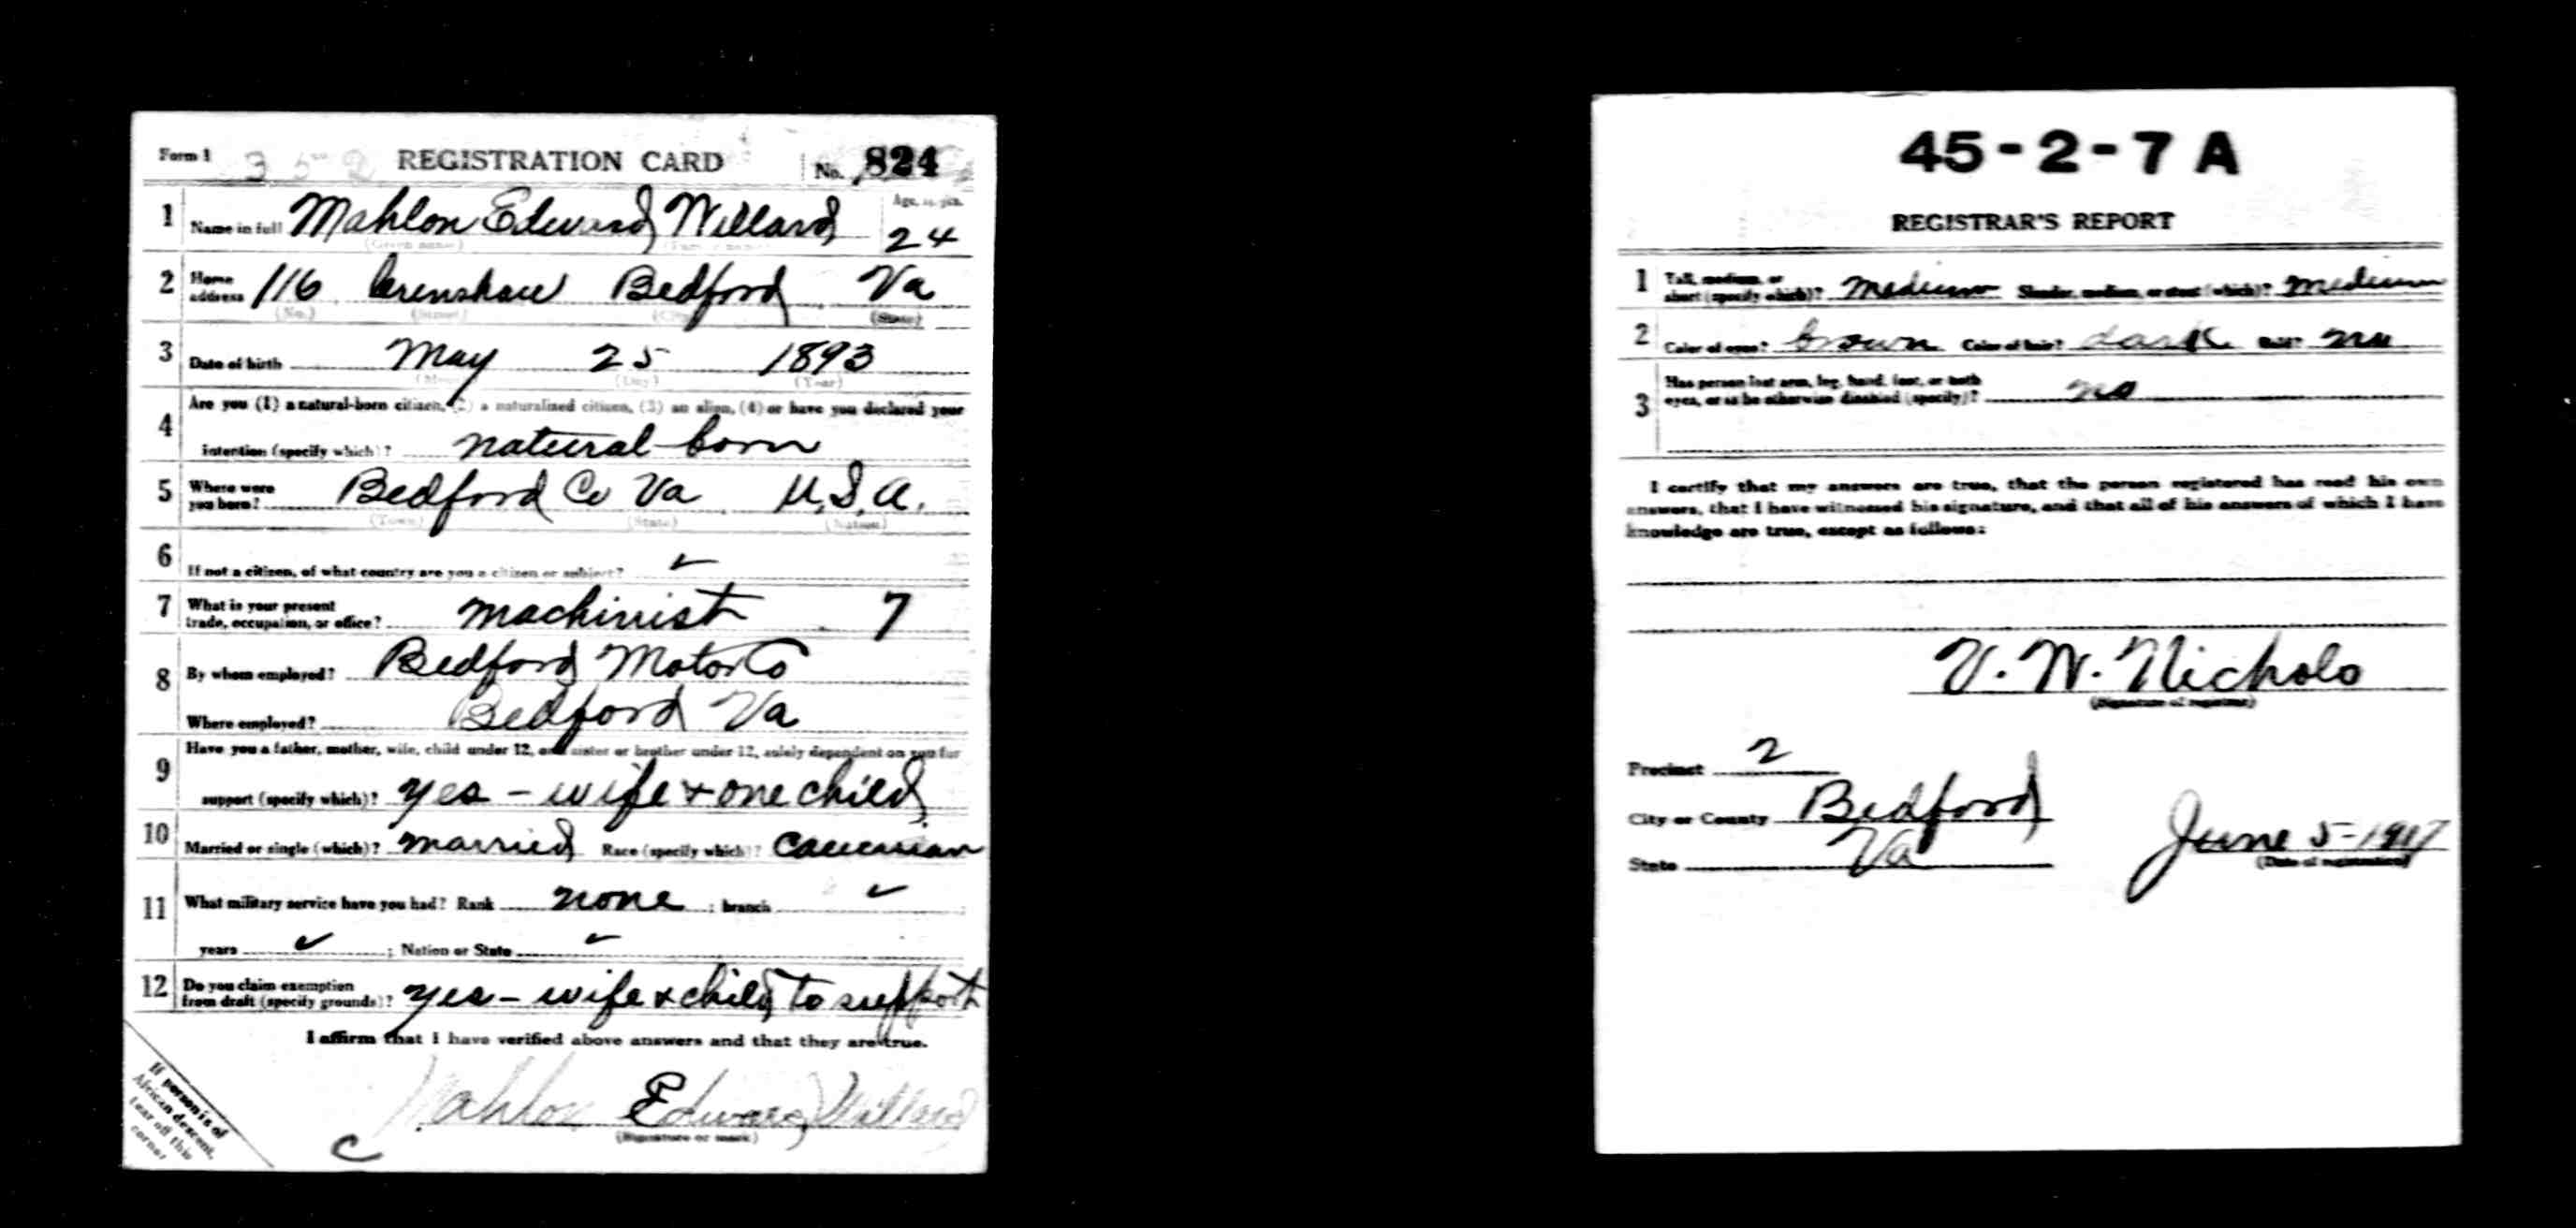 Form 1 352 REGISTRATION CARD No. 824
1 Name in full Mahlon Edward Willard Age, in yrs.
(Given name) (Family name) 24
2 Home address 116 Crenshaw Bedford Va
(No.) (Street) (City) (State)
3 Date of birth May 25 1893
(Month) (Day) (Year)
4 Are you (1) a natural-born citizen, (2) a naturalized citizen, (3) an alien, (4) or have you declared your
intention (specify which)? natural born
5 Where were you born? Bedford Co Va U.S.A.
(Town) (State) (Nation)
6 If not a citizen, of what country are you a citizen or subject? ✓
7 What is your present trade, occupation, or office? machinist 7
8 By whom employed? Bedford Motor Co
Where employed? Bedford Va
9 Have you a father, mother, wife, child under 12, or a sister or brother under 12, solely dependent on you for
support (specify which)? yes - wife + one child
10 Married or single (which)? married Race (specify which)? Caucasian
11 What military service have you had? Rank none ; branch ✓
years ✓ ; Nation or State ✓
12 Do you claim exemption from draft (specify grounds)? yes - wife & child to support
I affirm that I have verified above answers and that they are true.
Mahlon Edward Willard
(Signature or mark)
If person is of
African descent,
tear off this
corner
C
45-2-7 A
REGISTRAR'S REPORT
1 Tall, medium, or short (specify which)? medium Slender, medium, or stout (which)? medium
2 Color of eyes? brown Color of hair? dark Bald? no
3 Has person lost arm, leg, hand, foot, or both
eyes, or is he otherwise disabled (specify)? no
I certify that my answers are true, that the person registered has read his own
answers, that I have witnessed his signature, and that all of his answers of which I have
knowledge are true, except as follows:
V. W. Nichols
(Signature of registrar)
Precinct 2
City or County Bedford
State Va June 5-1917
(Date of registration)